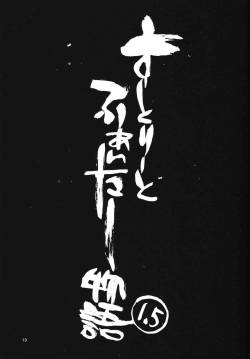 すとりーと
ふぁいたー
物語
1.5
13